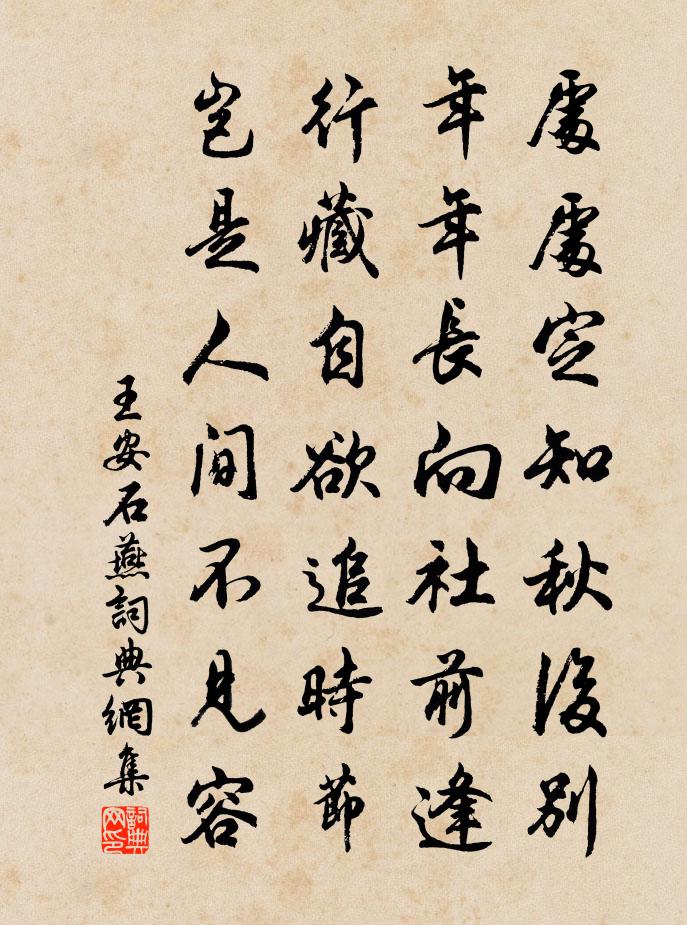 處處定知秋後別
年年長向社前逢
行藏自欲追時節
豈是人間不見容
王安石燕詞典網集
詞典網印